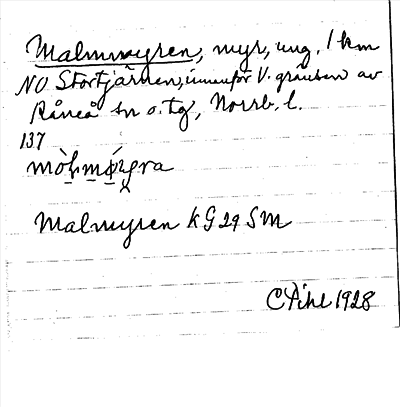 Malmmyren, myr, ung. 1 km
NO Stortjärnen, innanför V. gränsen av
Råneå sn o. tg, Norrb. l.
137
Malmyren kG 29 SM
C Pihl 1928